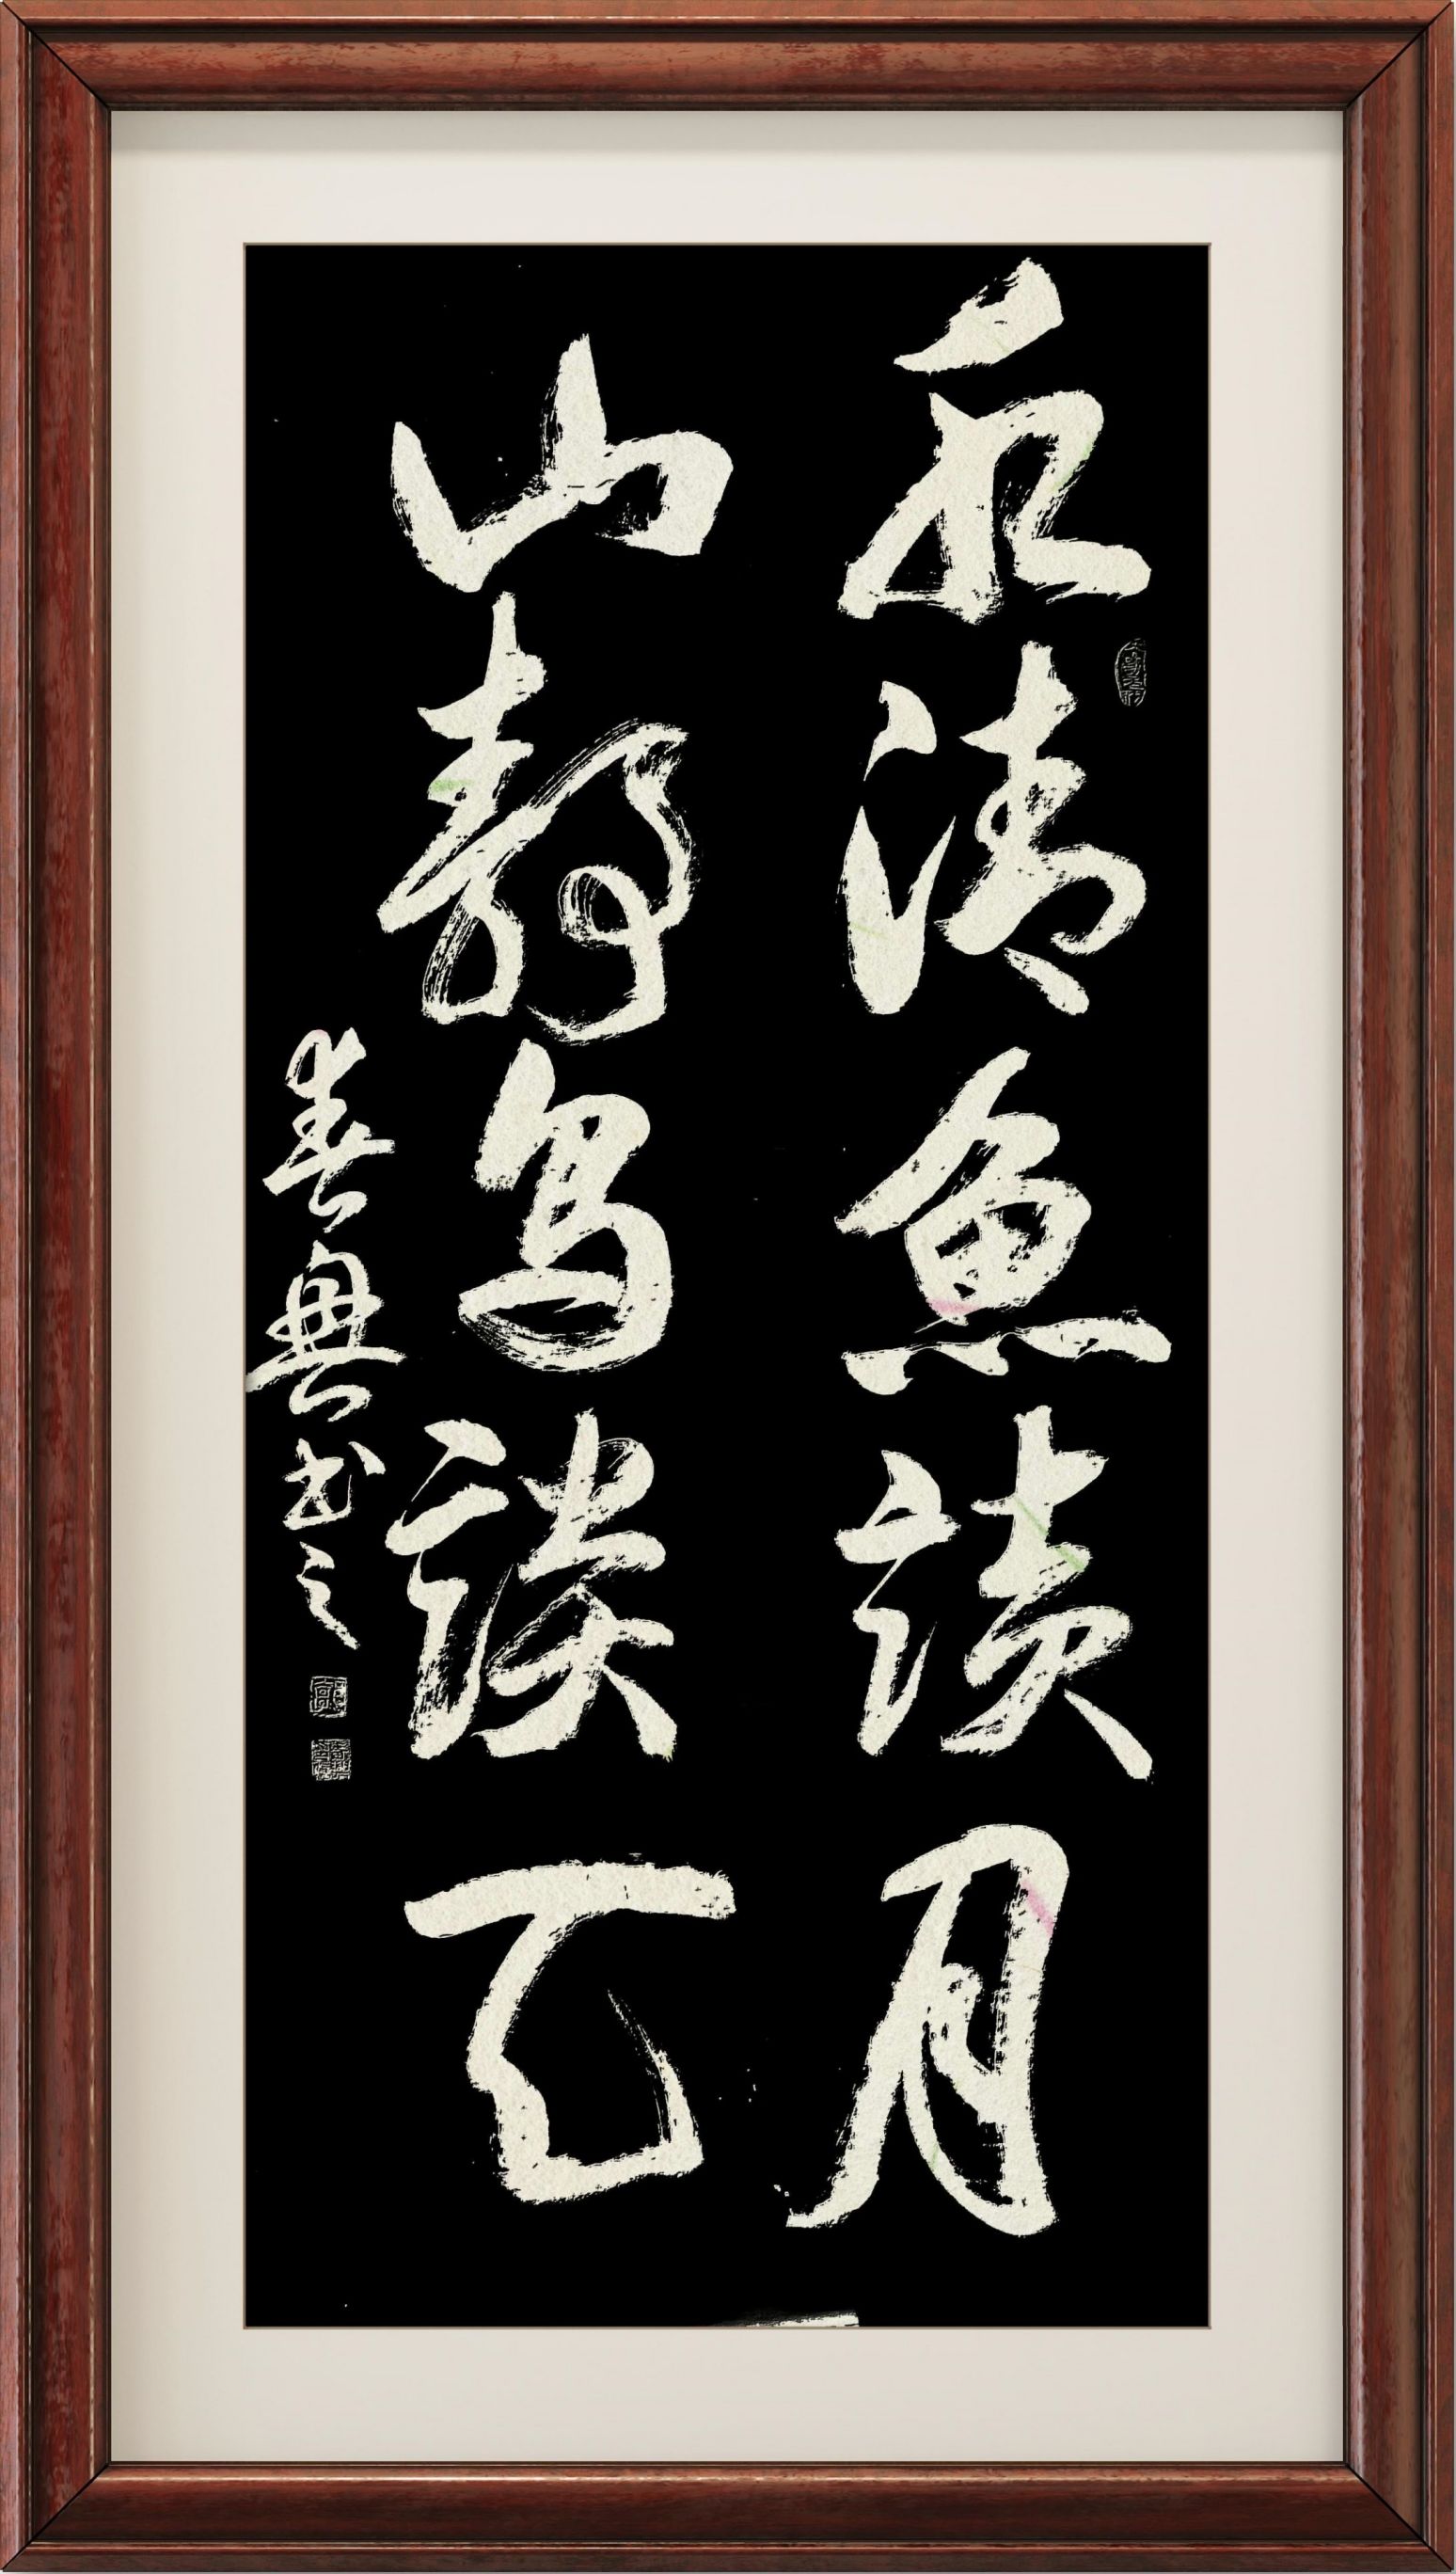 水清魚讀月
山靜鳥談天
興書之